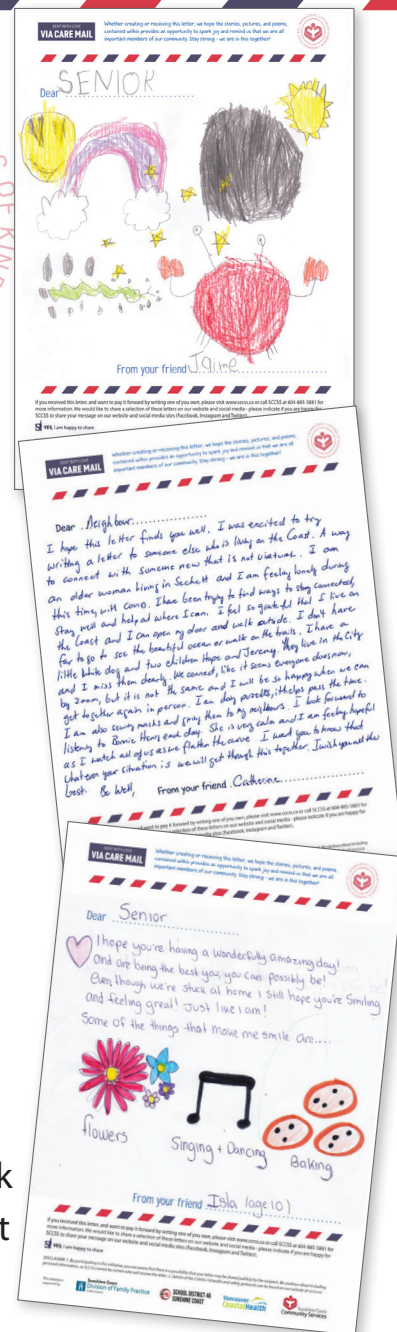 SENT WITH LOVE
VIA CARE MAIL
Whether creating or receiving this letter, we hope the stories, pictures, and poems,
contained within provides an opportunity to spark joy and remind us that we are all
important members of our community. Stay strong - we are in this together!
Dear SENIOR
From your friend Jaime
If you received this letter, and want to pay it forward by writing one of you own, please visit www.sccss.ca or call SCCSS at 604-885-5881 for
more information. We would like to share a selection of these letters on our website and social media - please indicate if you are happy for
SCCSS to share your message on our website and social media sites (Facebook, Instagram and Twitter).
YES, I am happy to share
SENT WITH LOVE
VIA CARE MAIL
Whether creating or receiving this letter, we hope the stories, pictures, and poems,
contained within provides an opportunity to spark joy and remind us that we are all
important members of our community. Stay strong - we are in this together!
Dear Neighbour
I hope this letter finds you well. I was excited to try
writing a letter to someone else who is living on the Coast. A way
to connect with someone new that is not virtual. I am
an older woman living in Sechelt and I am feeling lonely during
this time, with COVID. I have been trying to find ways to stay connected,
stay well and help out where I can. I feel so grateful that I live on
the Coast and I can open my door and walk outside. I don't have
far to go to see the beautiful ocean or walk on the trails. I have a
little white dog and two children Hope and Jeremy. They live in the City
and I miss them dearly. We connect, like it seems everyone does now,
by Zoom, but it is not the same and I will be so happy when we can
get together again in person. I am doing puzzles, it helps pass the time.
I am also sewing masks and giving them to my neighbours. I look forward to
listening to Bonnie Henry each day. She is very calm and I am feeling hopeful
as I watch all of us as we flatten the curve. I want you to know that
whatever your situation is we will get through this together. I wish you all the
best. Be Well,
From your friend Catherine
want to pay it forward by writing one of you own, please visit www.sccss.ca or call SCCSS at 604-885-5881 for
selection of these letters on our website and social media - please indicate if you are happy for
media sites (Facebook, Instagram and Twitter).
SENT WITH LOVE
VIA CARE MAIL
Whether creating or receiving this letter, we hope the stories, pictures, and poems,
contained within provides an opportunity to spark joy and remind us that we are all
important members of our community. Stay strong - we are in this together!
Dear Senior
I hope you're having a wonderfully amazing day!
and are being the best you, you can possibly be!
Even though we're stuck at home I still hope you're smiling
and feeling great! Just like I am!
Some of the things that make me smile are....
flowers
Singing + Dancing
Baking
From your friend Isla (age 10)
If you received this letter, and want to pay it forward by writing one of you own, please visit www.sccss.ca or call SCCSS at 604-885-5881 for
more information. We would like to share a selection of these letters on our website and social media - please indicate if you are happy for
SCCSS to share your message on our website and social media sites (Facebook, Instagram and Twitter).
YES, I am happy to share
Sunshine Coast
Division of Family Practice
SCHOOL DISTRICT 46
SUNSHINE COAST
Vancouver
CoastalHealth
Sunshine Coast
Community Services